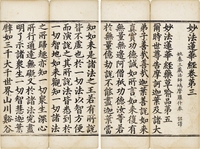 妙法蓮華經卷第三
姚秦三藏法師鳩摩羅什奉 詔譯
妙法蓮華經藥草喻品第五
爾時世尊告摩訶迦葉及諸大
弟子善哉善哉迦葉善說如來
真實功德誠如所言如來復有
無量無邊阿僧祇功德汝等若
於無量億劫說不能盡迦葉當
知如來是諸法之王若有所說
皆不虛也於一切法以智方便
而演說之其所說法皆悉到於
一切智地如來觀知一切諸法
之所歸趣亦知一切眾生深心
所行通達無礙又於諸法究盡
明了示諸眾生一切智慧迦葉
譬如三千大千世界山川谿谷